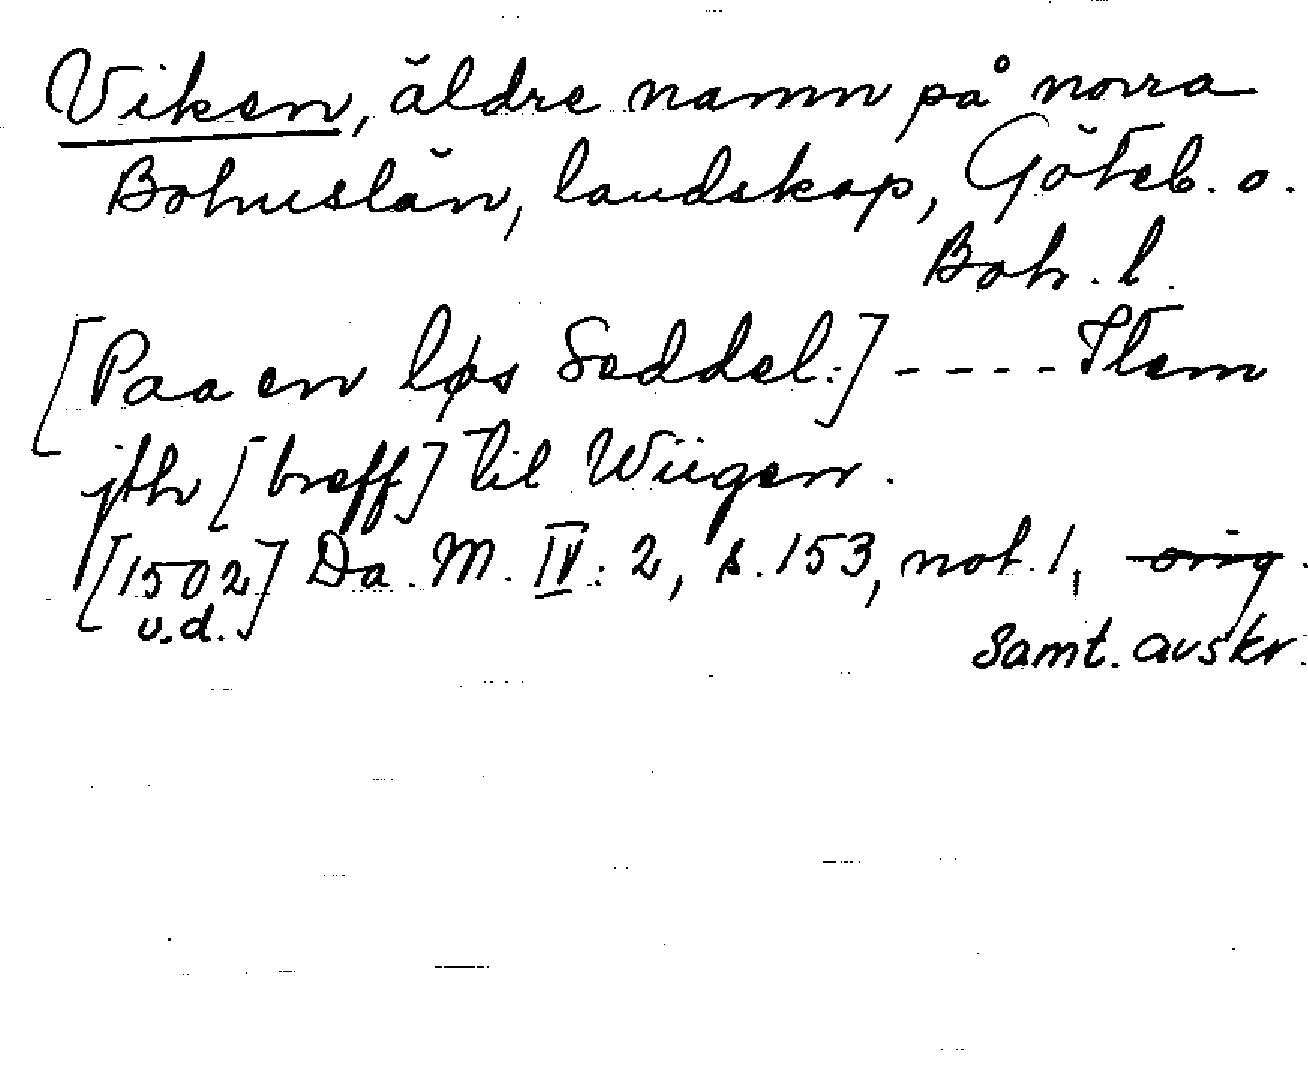 Viken, äldre namn på norra
Bohuslän, landskap, Göteb. o.
Boh. l.
[Paa en løs Seddel:] ---- Item
jth [breff] til Wiigen.
[1502] Da. M. IV: 2, s. 153, not. 1, orig.
u.d.
Samt. avskr.